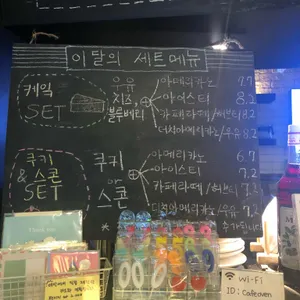 이달의 세트메뉴
케익 SET
우유
치즈
블루베리
⊕
아메리카노 7.7
아이스티 8.2
카페라떼/허브티 8.2
더치아메리카노/우유 8.2
쿠키 & 스콘 SET
쿠키 or 스콘
⊕
아메리카노 6.7
아이스티 7.2
카페라떼/허브티 7.2
더치아메리카노/우유 7.2
추가됩니다
WI-FI
ID: Cafeoven